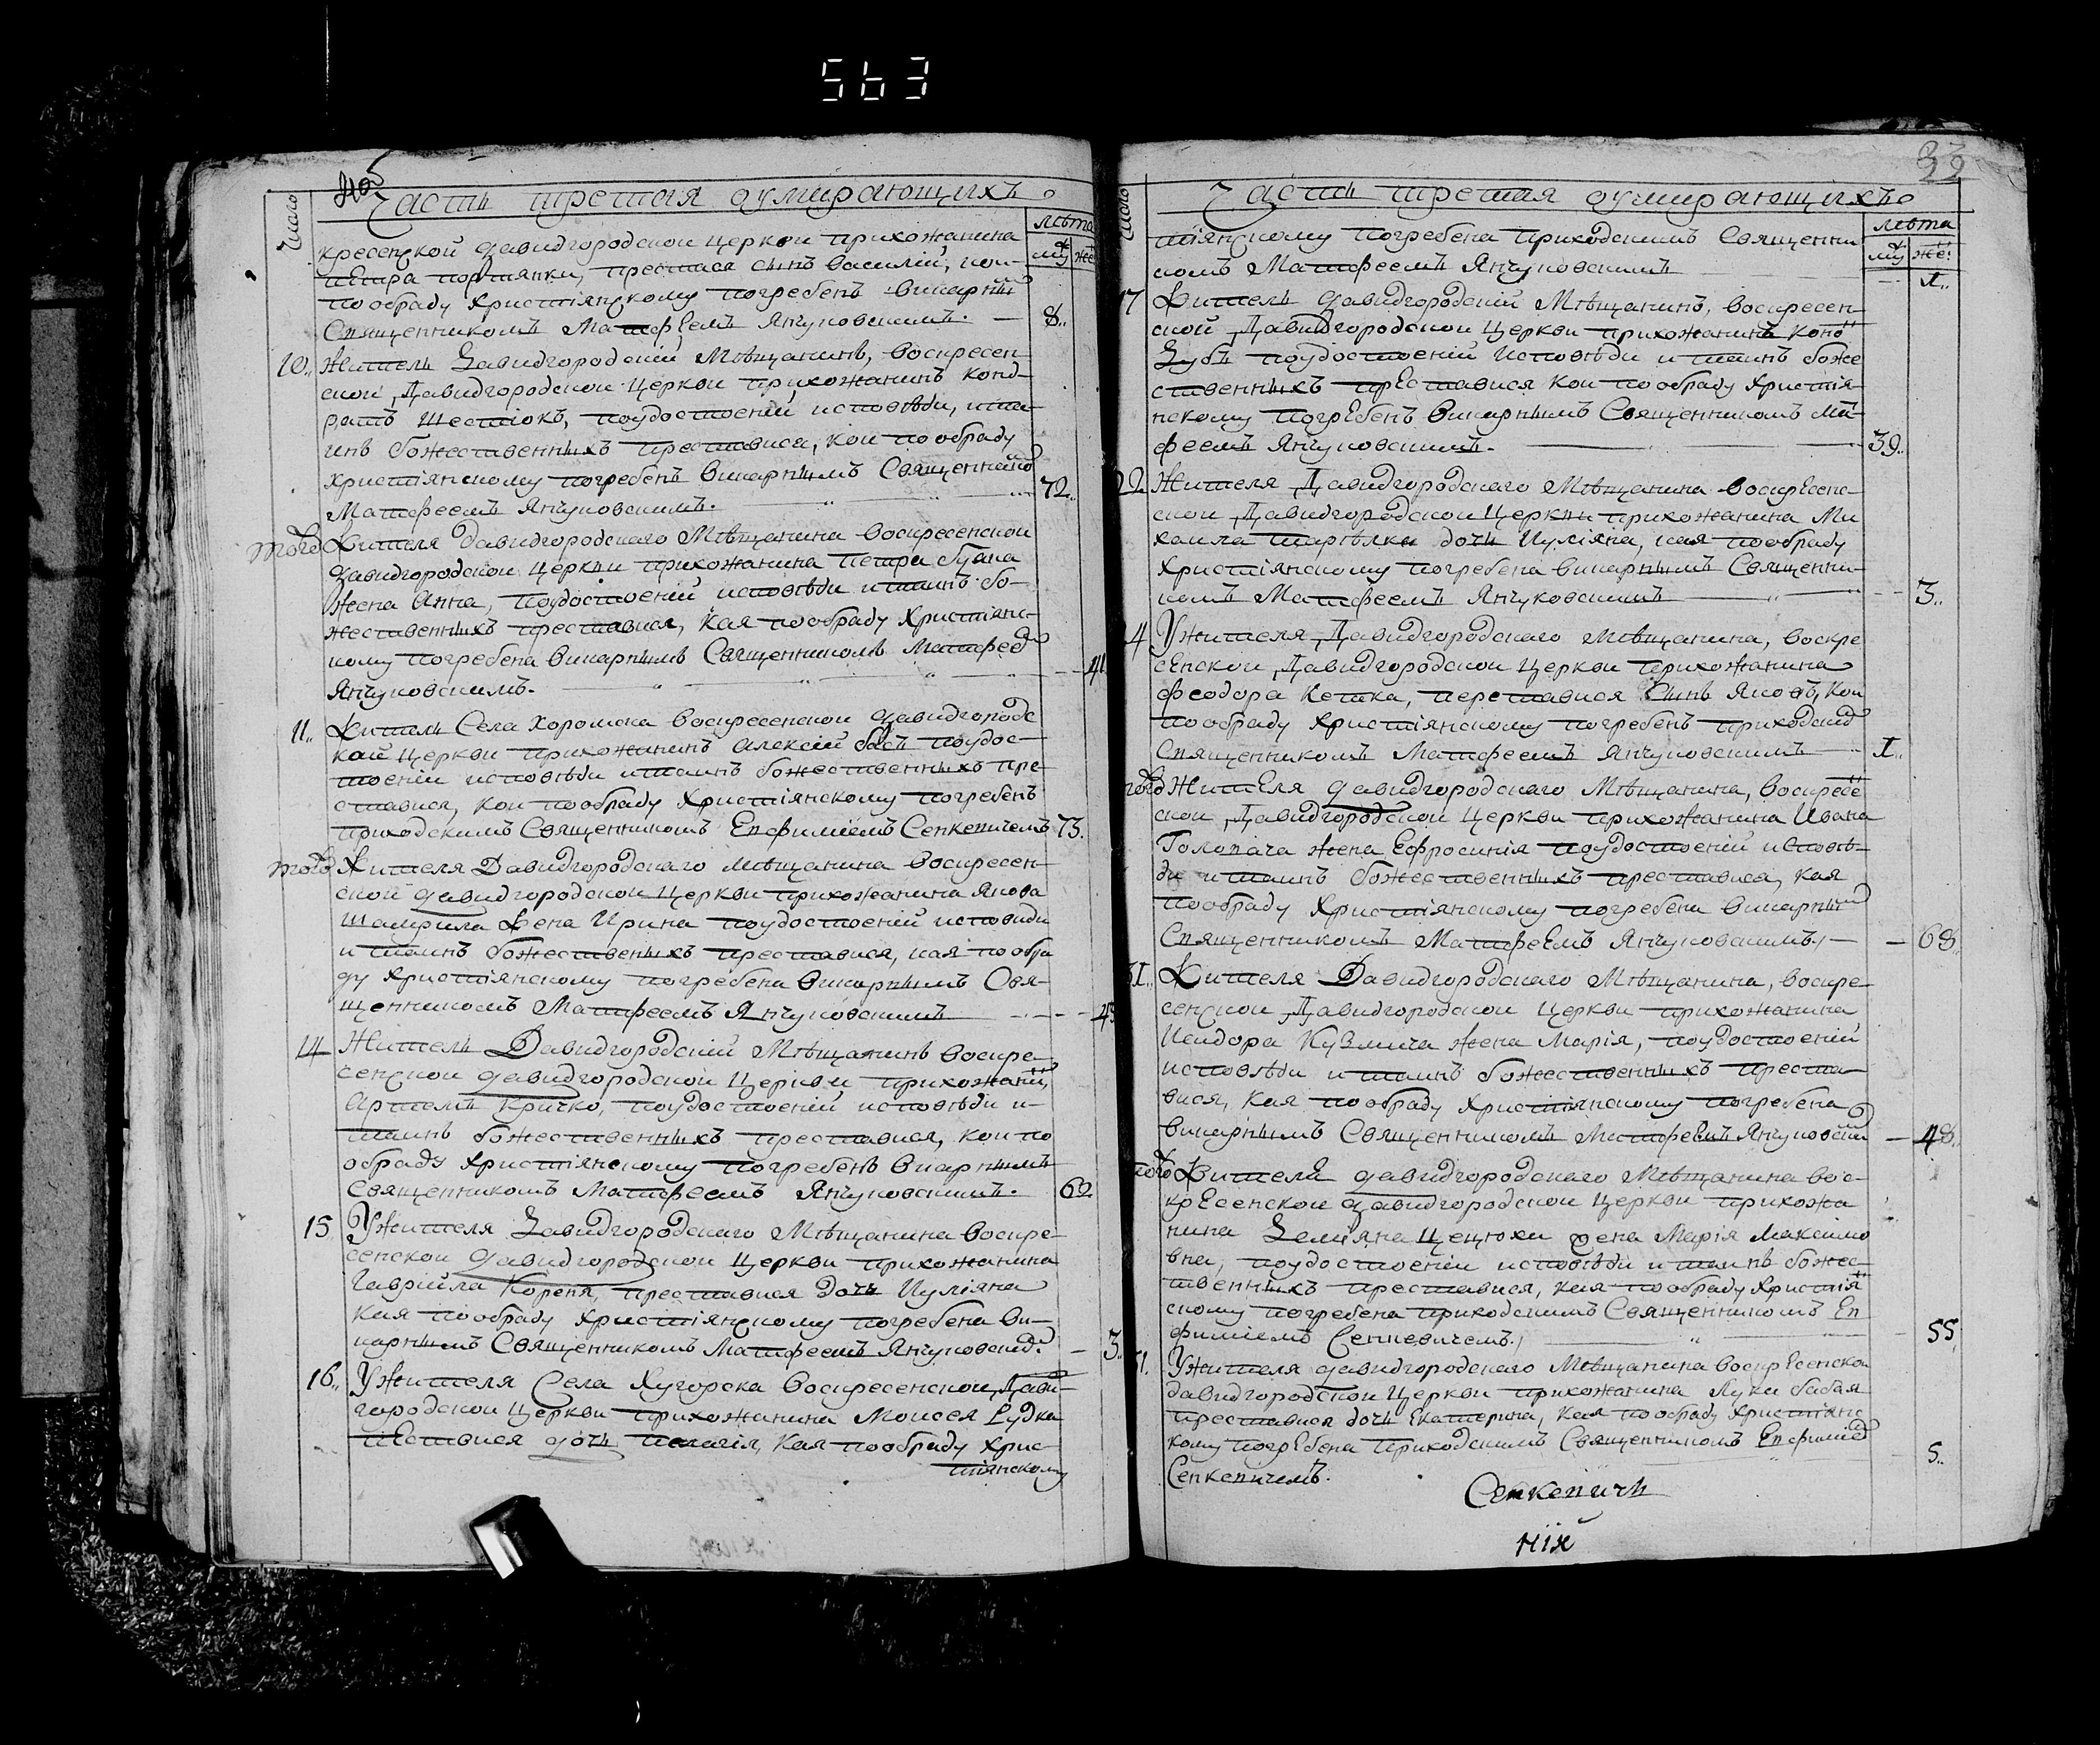 563
Часть третая оумирающихъ
число
лѣта
му же
кресенской Давидгородской церкви прихожанина
Петра портянки, престася сынъ Василій, кой
по обряду христіянскому погребенъ викарны
Священникомъ Матфеемъ Янчуковскимъ. — 8..
10.. Житель Давидгородскій Мѣщанинъ, Воскресен
ской Давидгородской Церкви прихожанинъ Конд-
ратъ Шестюкъ, поудостоеній исповѣди, ита
инъ божественныхъ преставися, кои по обряду
христіянскому погребенъ викарнымъ Священнико
Матфеемъ Янчуковскимъ. 72..
того Жителя Давидгородскаго Мѣщанина Воскресенской
Давидгородской Церкви прихожанина Петра
жена Анна, поудостоеній исповѣди итаинъ бо-
жественныхъ преставися, кая по обряду Христіянс-
кому погребена викарнымъ Священникомъ Матфее
Янчуковскимъ.
11.. Житель Села Хоромска Воскресенской Давидгородс
кой Церкви прихожанинъ Алексій басъ поудос-
тоеніи исповѣди итаинъ божественныхъ пре-
ставися, кои по обряду Христіянскому погребенъ
приходскимъ Священникомъ Евфиміемъ Сенкевичемъ 73.
того Жителя Давидгородскаго мѣщанина Воскресен-
ской Давидгородской Церкви прихожанина Якова
Шамрила жена Ирина поудостоеній исповиди
и таинъ божественыхъ преставися, кая по обря
ду христіянскому погребена викарнымъ Свя-
щенникомъ Матфеемъ Янчуковскимъ
14 Житель Давидгородскій Мѣщанинъ Воскре-
сенской Давидгородской Церкви прихожани
Артемъ Кричко, поудостоеній исповѣди и
таинъ божественныхъ преставися, кои по
обряду христіянскому погребенъ викарнымъ
Священникомъ Матфеемъ Янчуковскимъ. 62
15 Ужителя Давидгородскаго Мѣщанина Воскре-
сенской Давидгородской Церкви прихожанина
Гавриила Кореня, преставися дочь Иуліяна
кая по обряду христіянскому погребена Ви-
карнымъ Священникомъ Матфеемъ Янчуковски — 3..
16.. Ужителя Села Хугорска Воскресенской Дави-
городской Церкви прихожанина Моисея Рудка
дочь Пелагія, кая по обряду хрис-
тіянскому
33
Часть третая оумирающихъ
число
лѣта
му же:
тіянскому погребена приходскимъ Священни
комъ Матфеемъ Янчуковскимъ 1..
17 Житель Давидгородскій Мѣщанинъ, Воскресен
ской Давидгородской Церкви прихожанинъ Коно
Зубъ поудостоеній исповѣди и таинъ боже
ственныхъ преставися кои по обряду Христія-
нскому погребенъ викарнымъ Священникомъ Ма
феемъ Янчуковскимъ. 39..
22 Жителя Давидгородскаго Мѣщанина Воскресен-
ской Давидгородской Церкви прихожанина Ми
хаила Шарѣлки дочь Иуліяна, кая по обряду
Христіянскому погребена викарнымъ Священни-
комъ Матфеемъ Янчуковскимъ 3..
4 Ужителя Давидгородскаго Мѣщанина, Воскре
сенской Давидгородской Церкви прихожанина
Феодора Кетка, переставися сынъ Яковъ, кои
по обряду Христіянскому погребенъ приходски
Священникомъ Матфеемъ Янчуковскимъ 1..
того Жителя Давидгородскаго Мѣщанина, Воскресе
ской Давидгородской Церкви прихожанина Ивана
Головача жена Ефросинія поудостоеній исповѣ-
ди и таинъ божественныхъ преставися, кая
по обряду Христіянскому погребена викарны
Священникомъ Матфеемъ Янчуковскимъ — 68
31.. Жителя Давидгородскаго Мѣщанина, Воскре-
сенской Давидгородской Церкви прихожанина
Исидора Кузмича жена Марія, поудостоеній
исповѣди и таинъ божественныхъ преста-
вися, кая по обряду Христіянскому погребена
викарнымъ Священникомъ Матфеемъ Янчуковски — 48..
того Жителя Давидгородскаго Мѣщанина Вос-
кресенской Давидгородской Церкви прихожа
нина Деміяна Цецюхи жена Марія Максимо
вна, поудостоеніи исповѣди и таинъ божес-
твенныхъ преставися, кая по обряду Христія
скому погребена приходскимъ Священникомъ Ев
фиміемъ Сенкевичемъ. 55
31. Ужителя Давидгородскаго Мѣщанина Воскресенско
Давидгородской Церкви прихожанина Луки бабая
преставися дочь Екатерина, кая по обряду христіянс
кому погребена приходскимъ Священникомъ Евфиміе
Сенкевичемъ. 5..
Сенкевичъ
ній